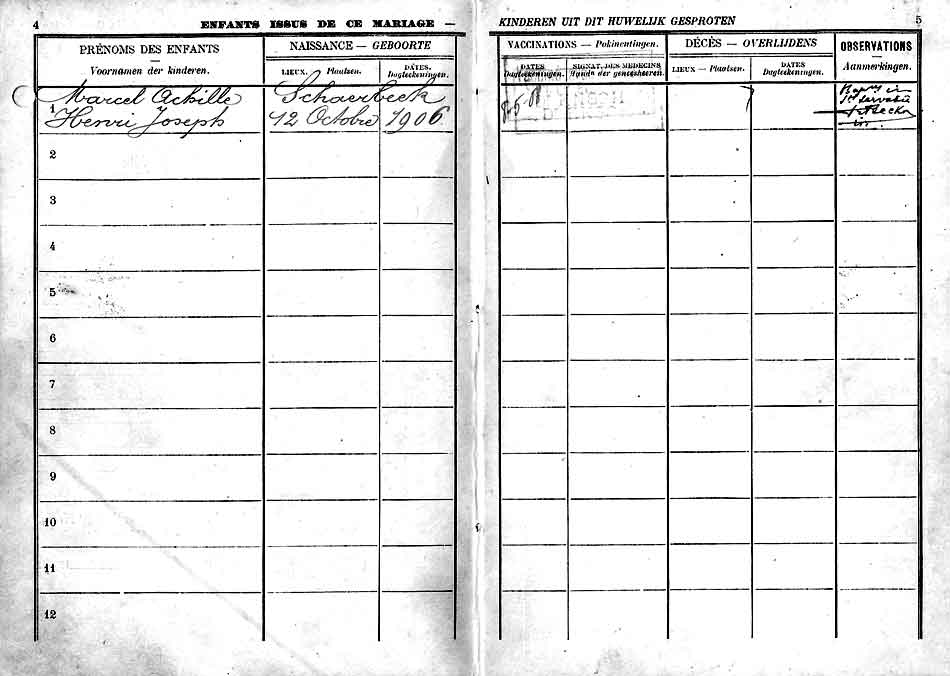 4
ENFANTS ISSUS DE CE MARIAGE —
KINDEREN UIT DIT HUWELIJK GESPROTEN
5
PRÉNOMS DES ENFANTS
—
Voornamen der kinderen.
NAISSANCE — GEBOORTE
LIEUX. Plaatsen.
DATES.
Dagteekeningen.
VACCINATIONS — Pokinentingen.
DATES
Dagteekeningen.
SIGNAT. DES MÉDECINS
Handt. der geneesheeren.
DÉCÈS — OVERLIJDENS
LIEUX — Plaatsen.
DATES
Dagteekeningen.
OBSERVATIONS
—
Aanmerkingen.
Marcel Achille Schaerbeek
1 Henri Joseph 12 Octobre 1906
2
3
4
5
6
7
8
9
10
11
12